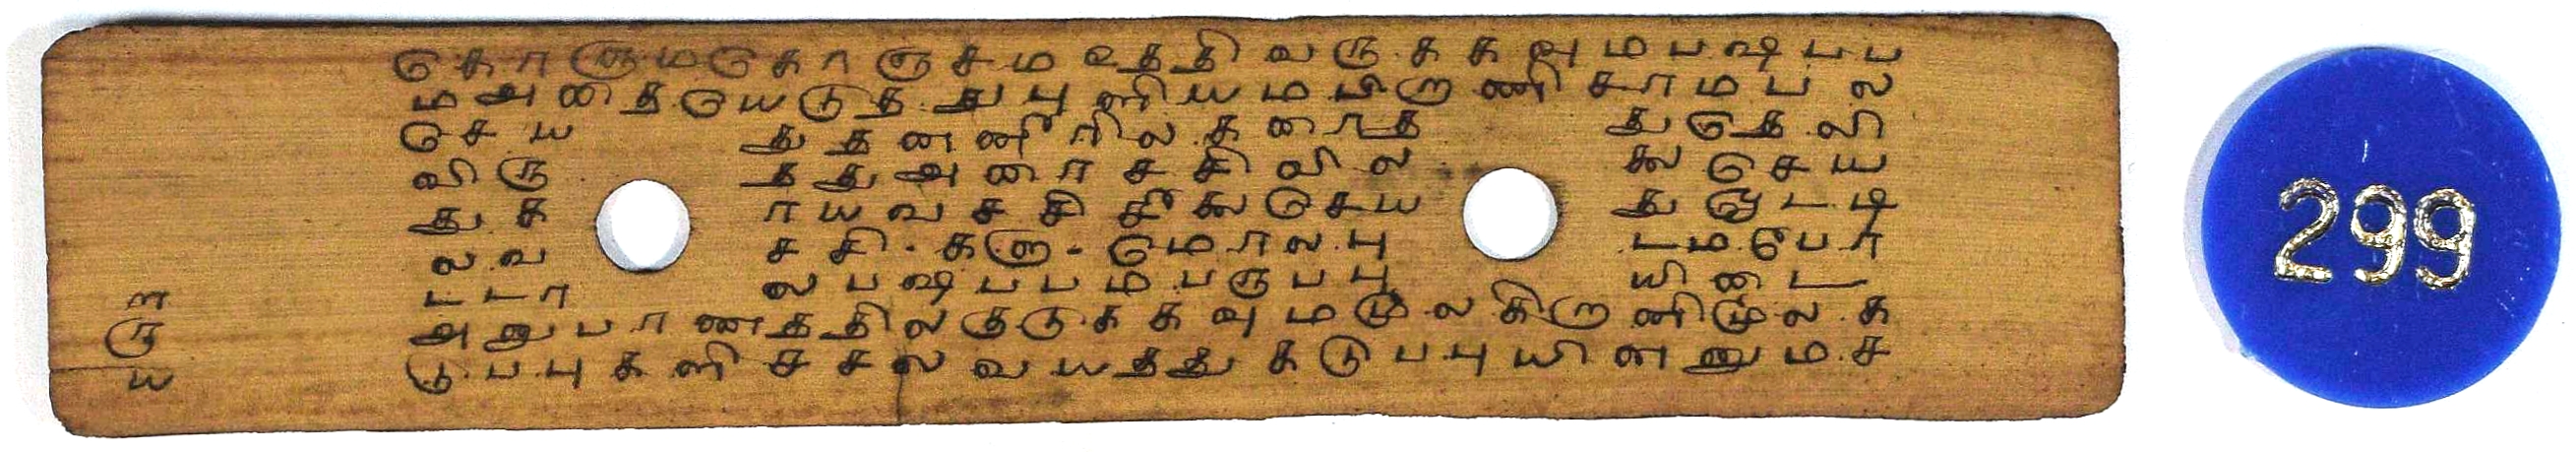 கொருமகொஞசமஉததிவருககவுமபஷபப
மஅனதையெடுததுபுளியமபிறணிசாமபல
செயதுதணணீரிலகரைததுதெலி
விருததுஅரைசசிவிலலசெய
துகாயவசசிசீலசெயதுஞூடடி
லவசசி-களு-மொலபுடமபோ
டடாலபஷபபமபருபபுயிடை
அனுபாணததிலகுடுககவுமமூலகிறணிமூலக
டுபபுகளிசசலவயததுகடுபபுயினனுமச
ளருய
299